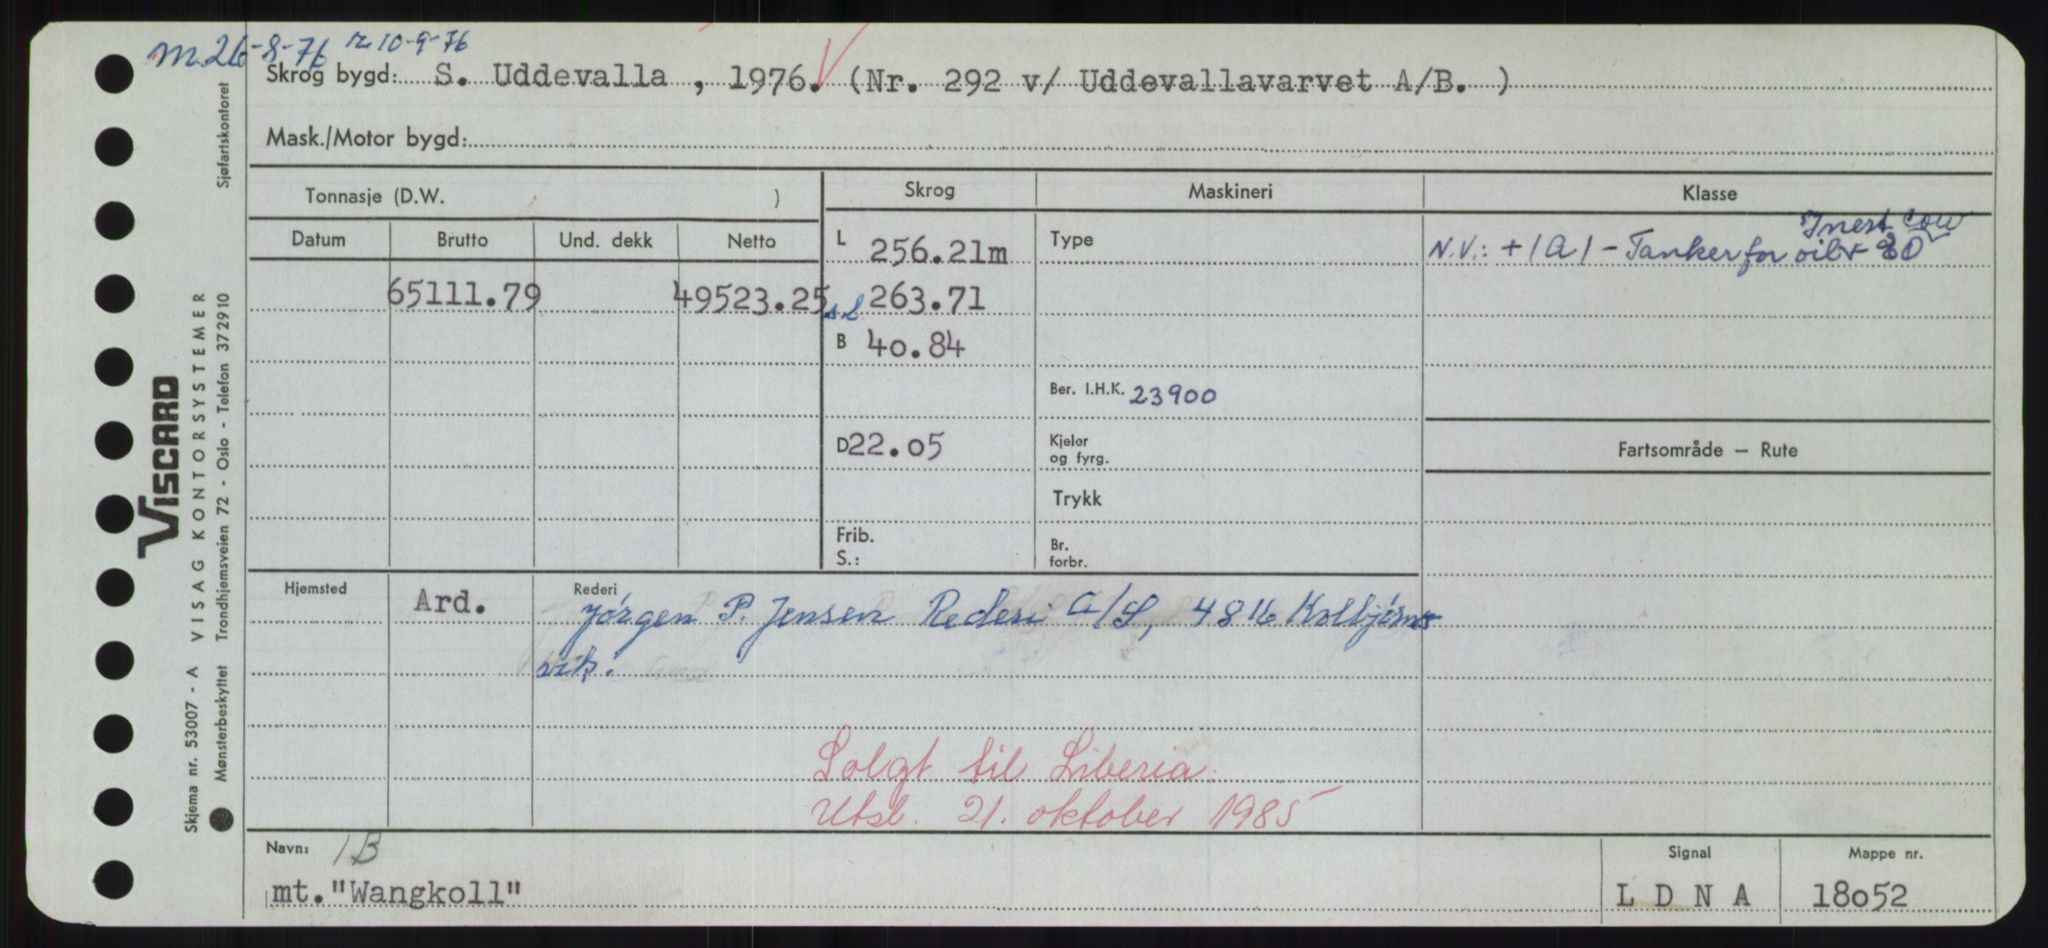 m 26-8-76 r. 10-9-76
Skrog bygd: S. Uddevalla, 1976. (Nr. 292 v/ Uddevallavarvet A/B. )
Mask./Motor bygd:
Tonnasje (D.W. ) Skrog Maskineri Klasse
Datum Brutto Und. dekk Netto L 256.21m Type N.V.: + 1A1 - Tanker for oil
Inert Cow
65111.79 49523.25 263.71
B 40.84
Ber. I.H.K. 23900
D 22.05 Kjeler og fyrg. Fartsområde — Rute
Trykk
Frib. S.: Br. forbr.
Hjemsted Ard. Rederi Jørgen P. Jensen Rederi A/S, 4816 Kolbjørns-
vik.
Solgt til Liberia.
Utsl. 21. oktober 1985
Navn: 1B Signal Mappe nr.
mt. "Wangkoll" L D N A 18052
Skjema nr. 53007 - A VISAG KONTORSYSTEMER Sjøfartskontoret
Mønsterbeskyttet Trondhjemsveien 72 - Oslo - Telefon 372910
VISCARD